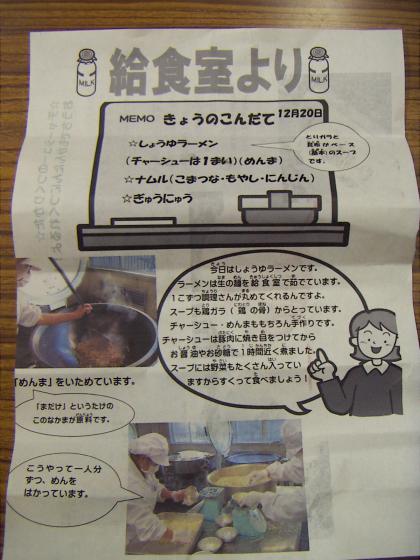 MILK
給食室より
MILK
MEMO きょうのこんだて 12月20日
☆しょうゆラーメン
(チャーシューは1まい)(めんま)
☆ナムル(こまつな・もやし・にんじん)
☆ぎゅうにゅう
とりガラと
昆布がベース
(基本)のスープ
です。
今日はしょうゆラーメンです。
ラーメンは生の麺を給食室で茹でています。
1こずつ調理さんが丸めてくれるんですよ。
スープも鶏ガラ(鶏の骨)からとっています。
チャーシュー・めんまももちろん手作りです。
チャーシューは豚肉に焼き目をつけてから
お醤油やお砂糖で1時間近く煮ました。
スープには野菜もたくさん入ってい
ますからすくって食べましょう!
「めんま」をいためています。
「まだけ」というたけの
このなかまが原料です。
こうやって一人分
ずつ、めんを
はかっています。